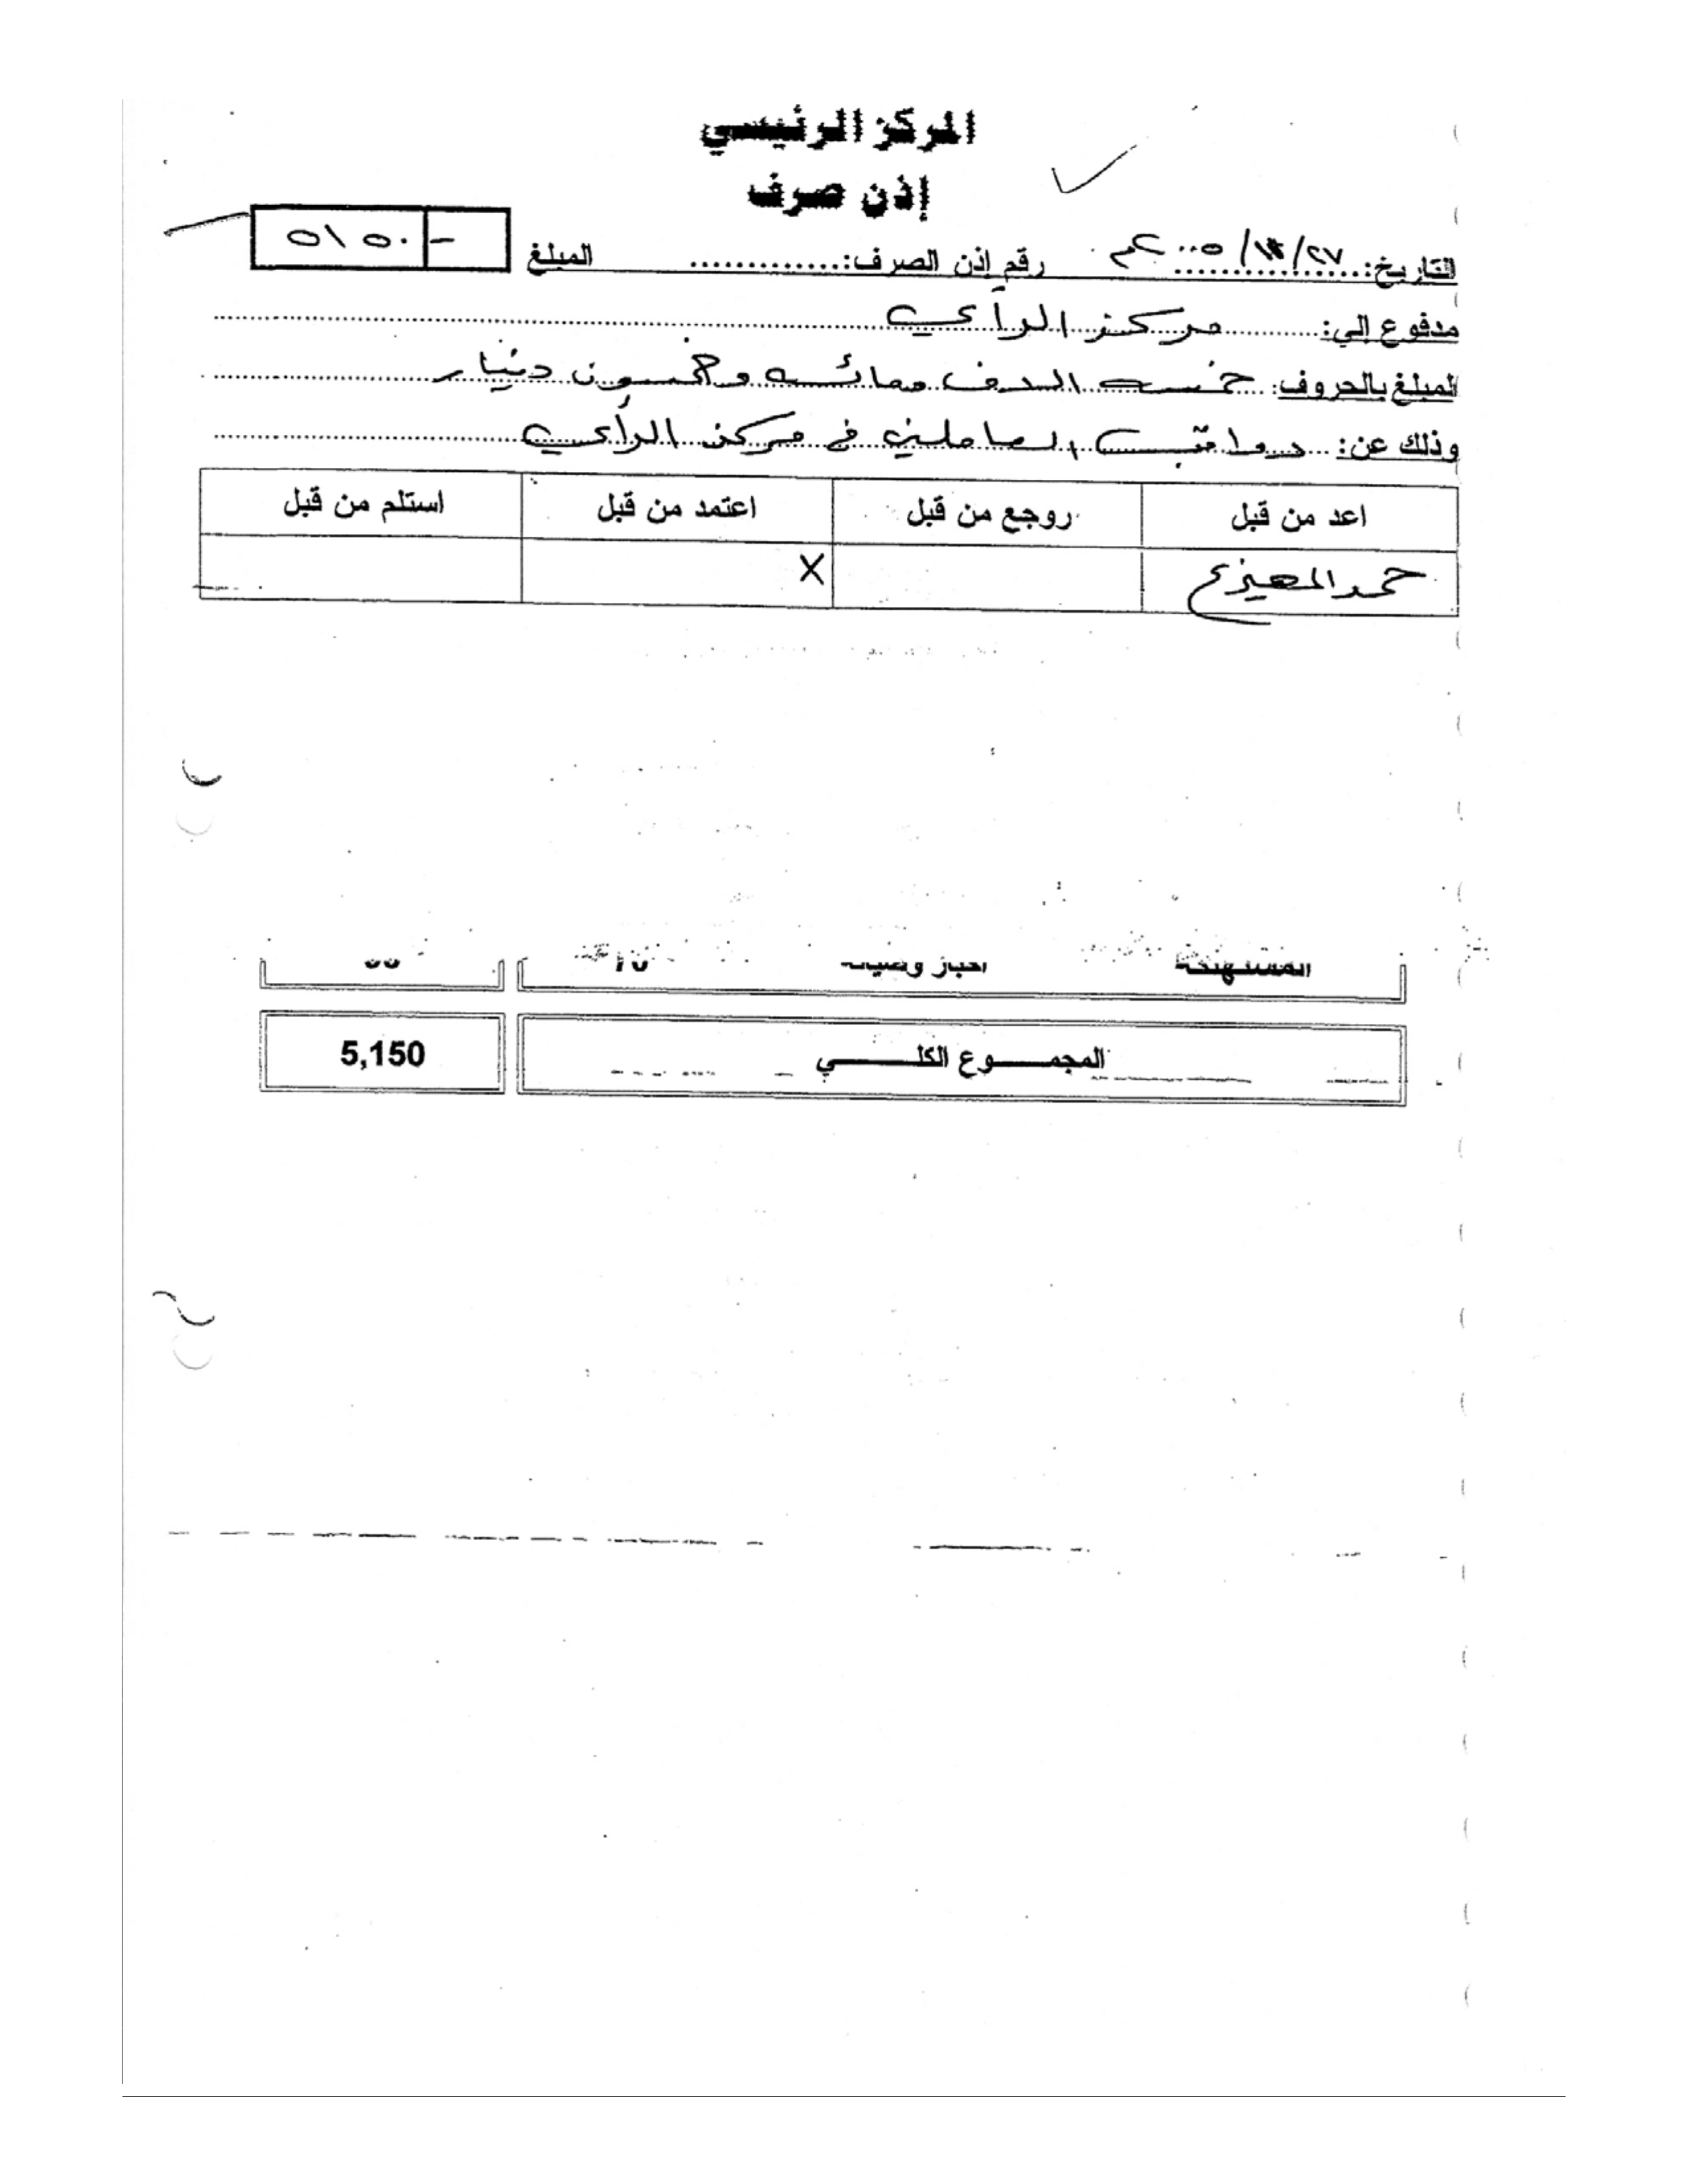 المركز الرئيسي
إذن صرف
التاريخ: ٢٧/ /٢٠٠٥م رقم إذن الصرف:.............. المبلغ ٥١٥٠ -
مدفوع إلي: مركز الرأي
المبلغ بالحروف: خمسه الدف ومائه وخمسون دنيار
وذلك عن: رواتب العاملين في مركز الرأي
اعد من قبل روجع من قبل اعتمد من قبل استلم من قبل
حمد X
المجمــوع الكلــــي 5,150